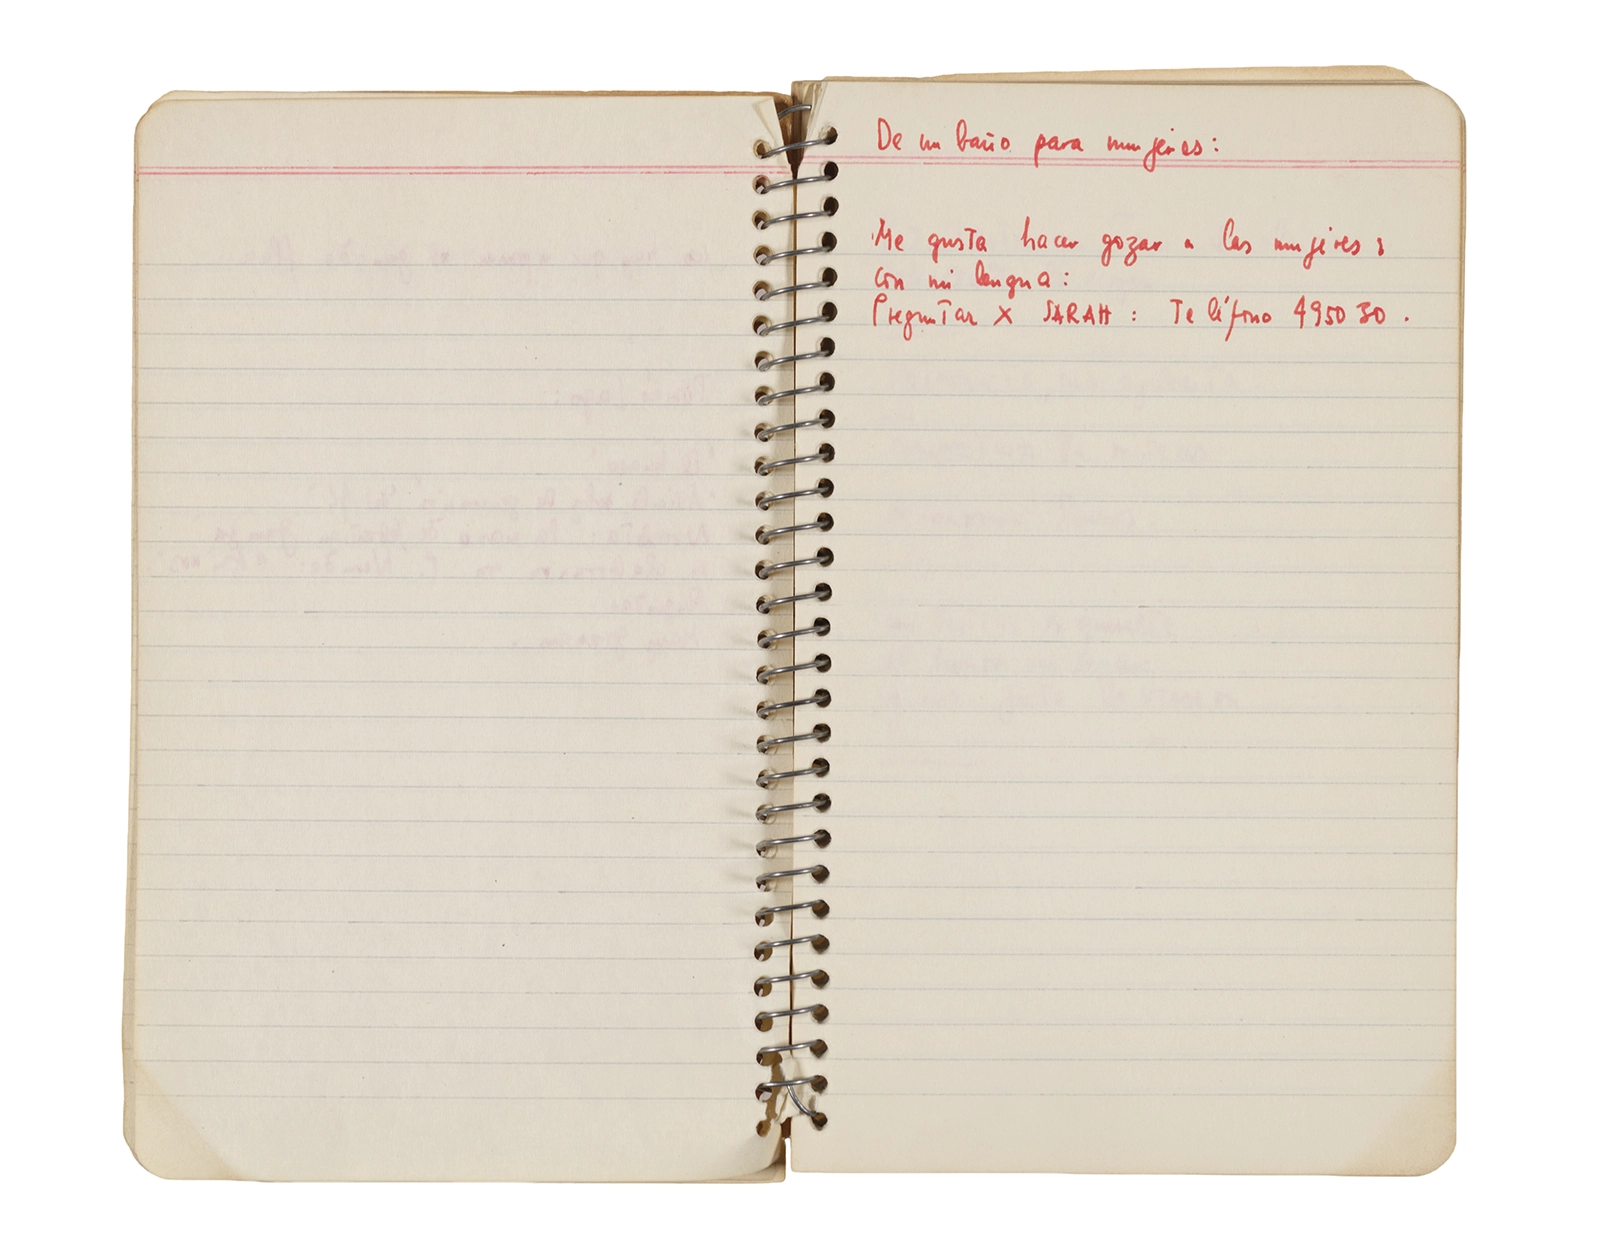 De un baño para mujeres:
Me gusta hacer gozar a las mujeres:
con mi lengua:
Preguntar X SARAH: Teléfono 495030.